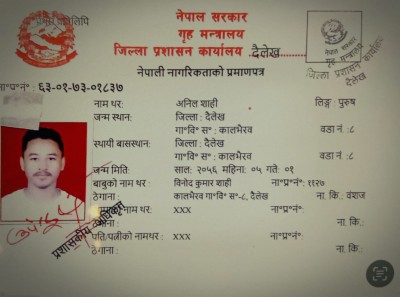 प्रतिलिपि
नेपाल सरकार
गृह मन्त्रालय
जिल्ला प्रशासन कार्यालय दैलेख
नेपाल सरकार
गृह मन्त्रालय
जिल्ला प्रशासन कार्यालय
दैलेख
नेपाली नागरिकताको प्रमाणपत्र
ना°प्र°नं° : ६३-०१-७३-०१८३७
नाम थर: अनिल शाही लिङ्ग : पुरुष
जन्म स्थान: जिल्ला : दैलेख
गा°वि° स° : कालभैरव वडा नं :८
स्थायी बासस्थान: जिल्ला : दैलेख
गा°वि° स° : कालभैरव वडा नं :८
जन्म मिति: साल: २०५६ महिना: ०५ गते: ०१
बाबुको नाम थर : विनोद कुमार शाही ना°प्र°नं°: ११२७
ठेगाना : कालभैरव गा°वि° स°-८, दैलेख ना. कि.: वंशज
नाम थर: xxx ना°प्र°नं°:
ठेगाना : ना. कि.:
पति/पत्नीको नामथर : xxx ना°प्र°नं°:
ठेगाना : ना. कि.:
प्रशासकीय अधिकृत